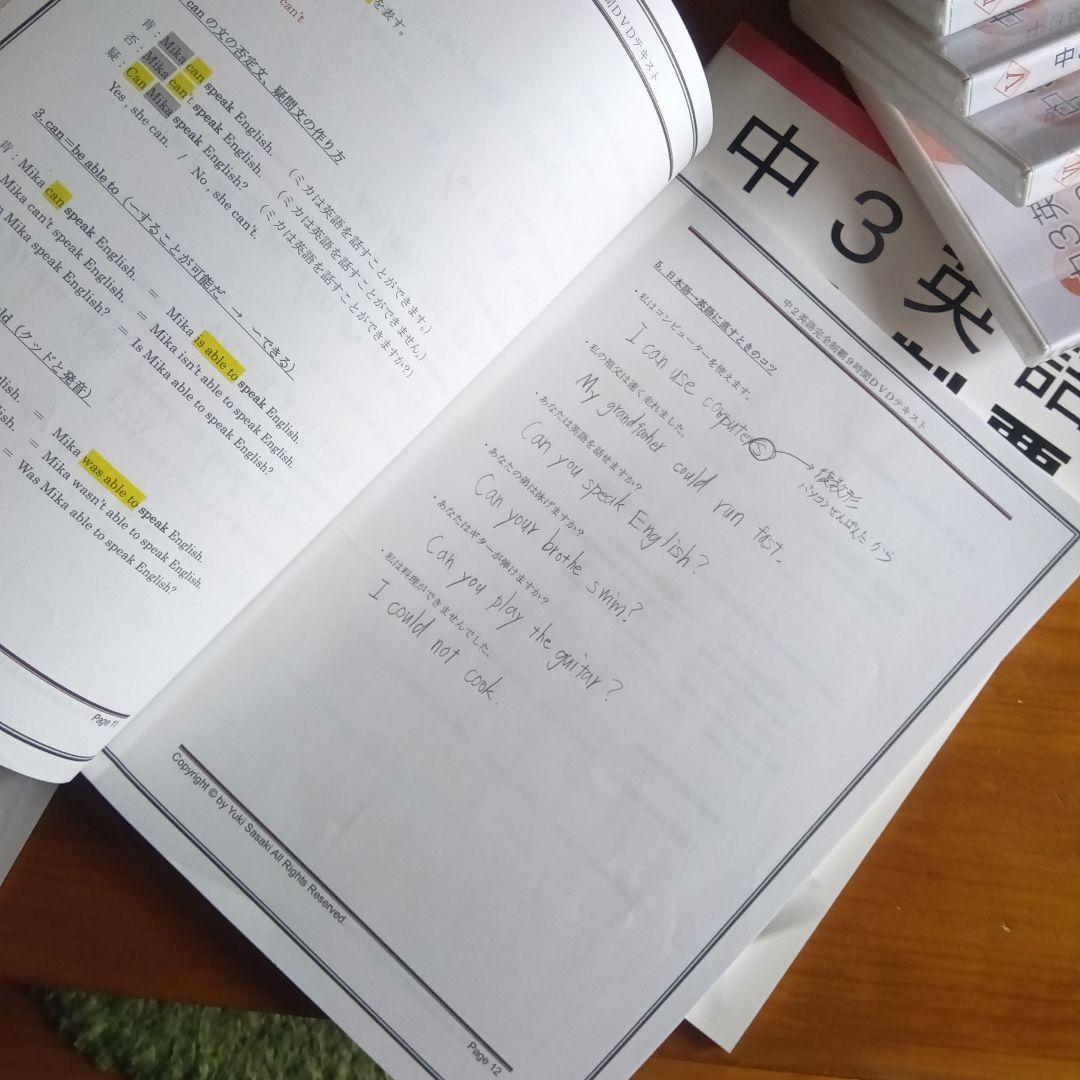 can't
を表す。
can の文の否定文、疑問文の作り方
肯：Mika can speak English. (ミカは英語を話すことができます。)
否：Mika can't speak English. (ミカは英語を話すことができません。)
疑：Can Mika speak English? (ミカは英語を話すことができますか？)
Yes , she can. / No , she can't.
3. can＝be able to（～することが可能だ → ～できる）
肯：Mika can speak English. = Mika is able to speak English.
Mika can't speak English. = Mika isn't able to speak English.
Mika speak English? = Is Mika able to speak English?
（クッドと発音）
= Mika was able to speak English.
= Mika wasn't able to speak English.
= Was Mika able to speak English?
Page 11
間DVDテキスト
中２英語完全制覇９時間DVDテキスト
5. 日本語→英語に直すときのコツ
・私はコンピューターを使えます。
I can use computers
複数形
パソコンぜんぱんだから
・私の祖父は速く走れました。
My grandfather could run fast.
・あなたは英語を話せますか？
Can you speak English?
・あなたの弟は泳げますか？
Can your brothe swim?
・あなたはギターが弾けますか？
Can you play the guitar?
・私は料理ができませんでした。
I could not cook.
Copyright © by Yuki Sasaki All Rights Reserved.
Page 12
中３英語
中3英